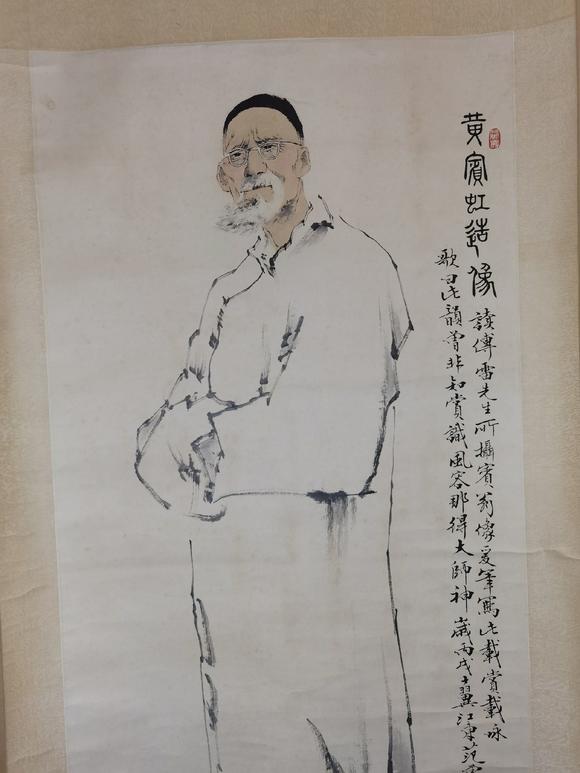 黄賓虹造像
讀傅雷先生所攝賓翁像爰筆寫此載賞載咏
歌曰此韻曾非知賞識風容那得大師神歲丙戌十翼江東范